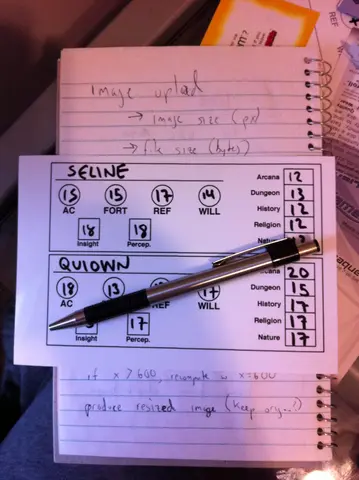 Image upload
→ image size (px)
→ file size (bytes)
SELINE
15 15 17 14
AC FORT REF WILL
18 18
Insight Percep.
Arcana 12
Dungeon 13
History 12
Religion 12
Nature
QUIOWN
18 13 17
AC REF WILL
17
Insight Percep.
Arcana 20
Dungeon 15
History 17
Religion 17
Nature 17
if x > 600, recompute x=600
produce resized image (keep orig